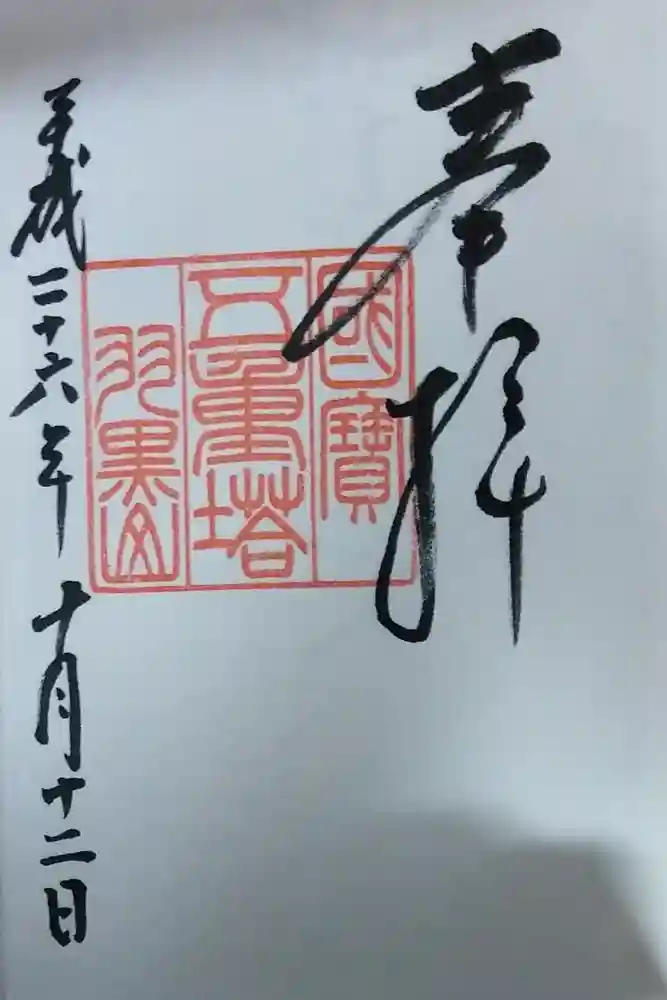 奉拝
國寶
五重塔
羽黒山
平成二十六年十月十二日